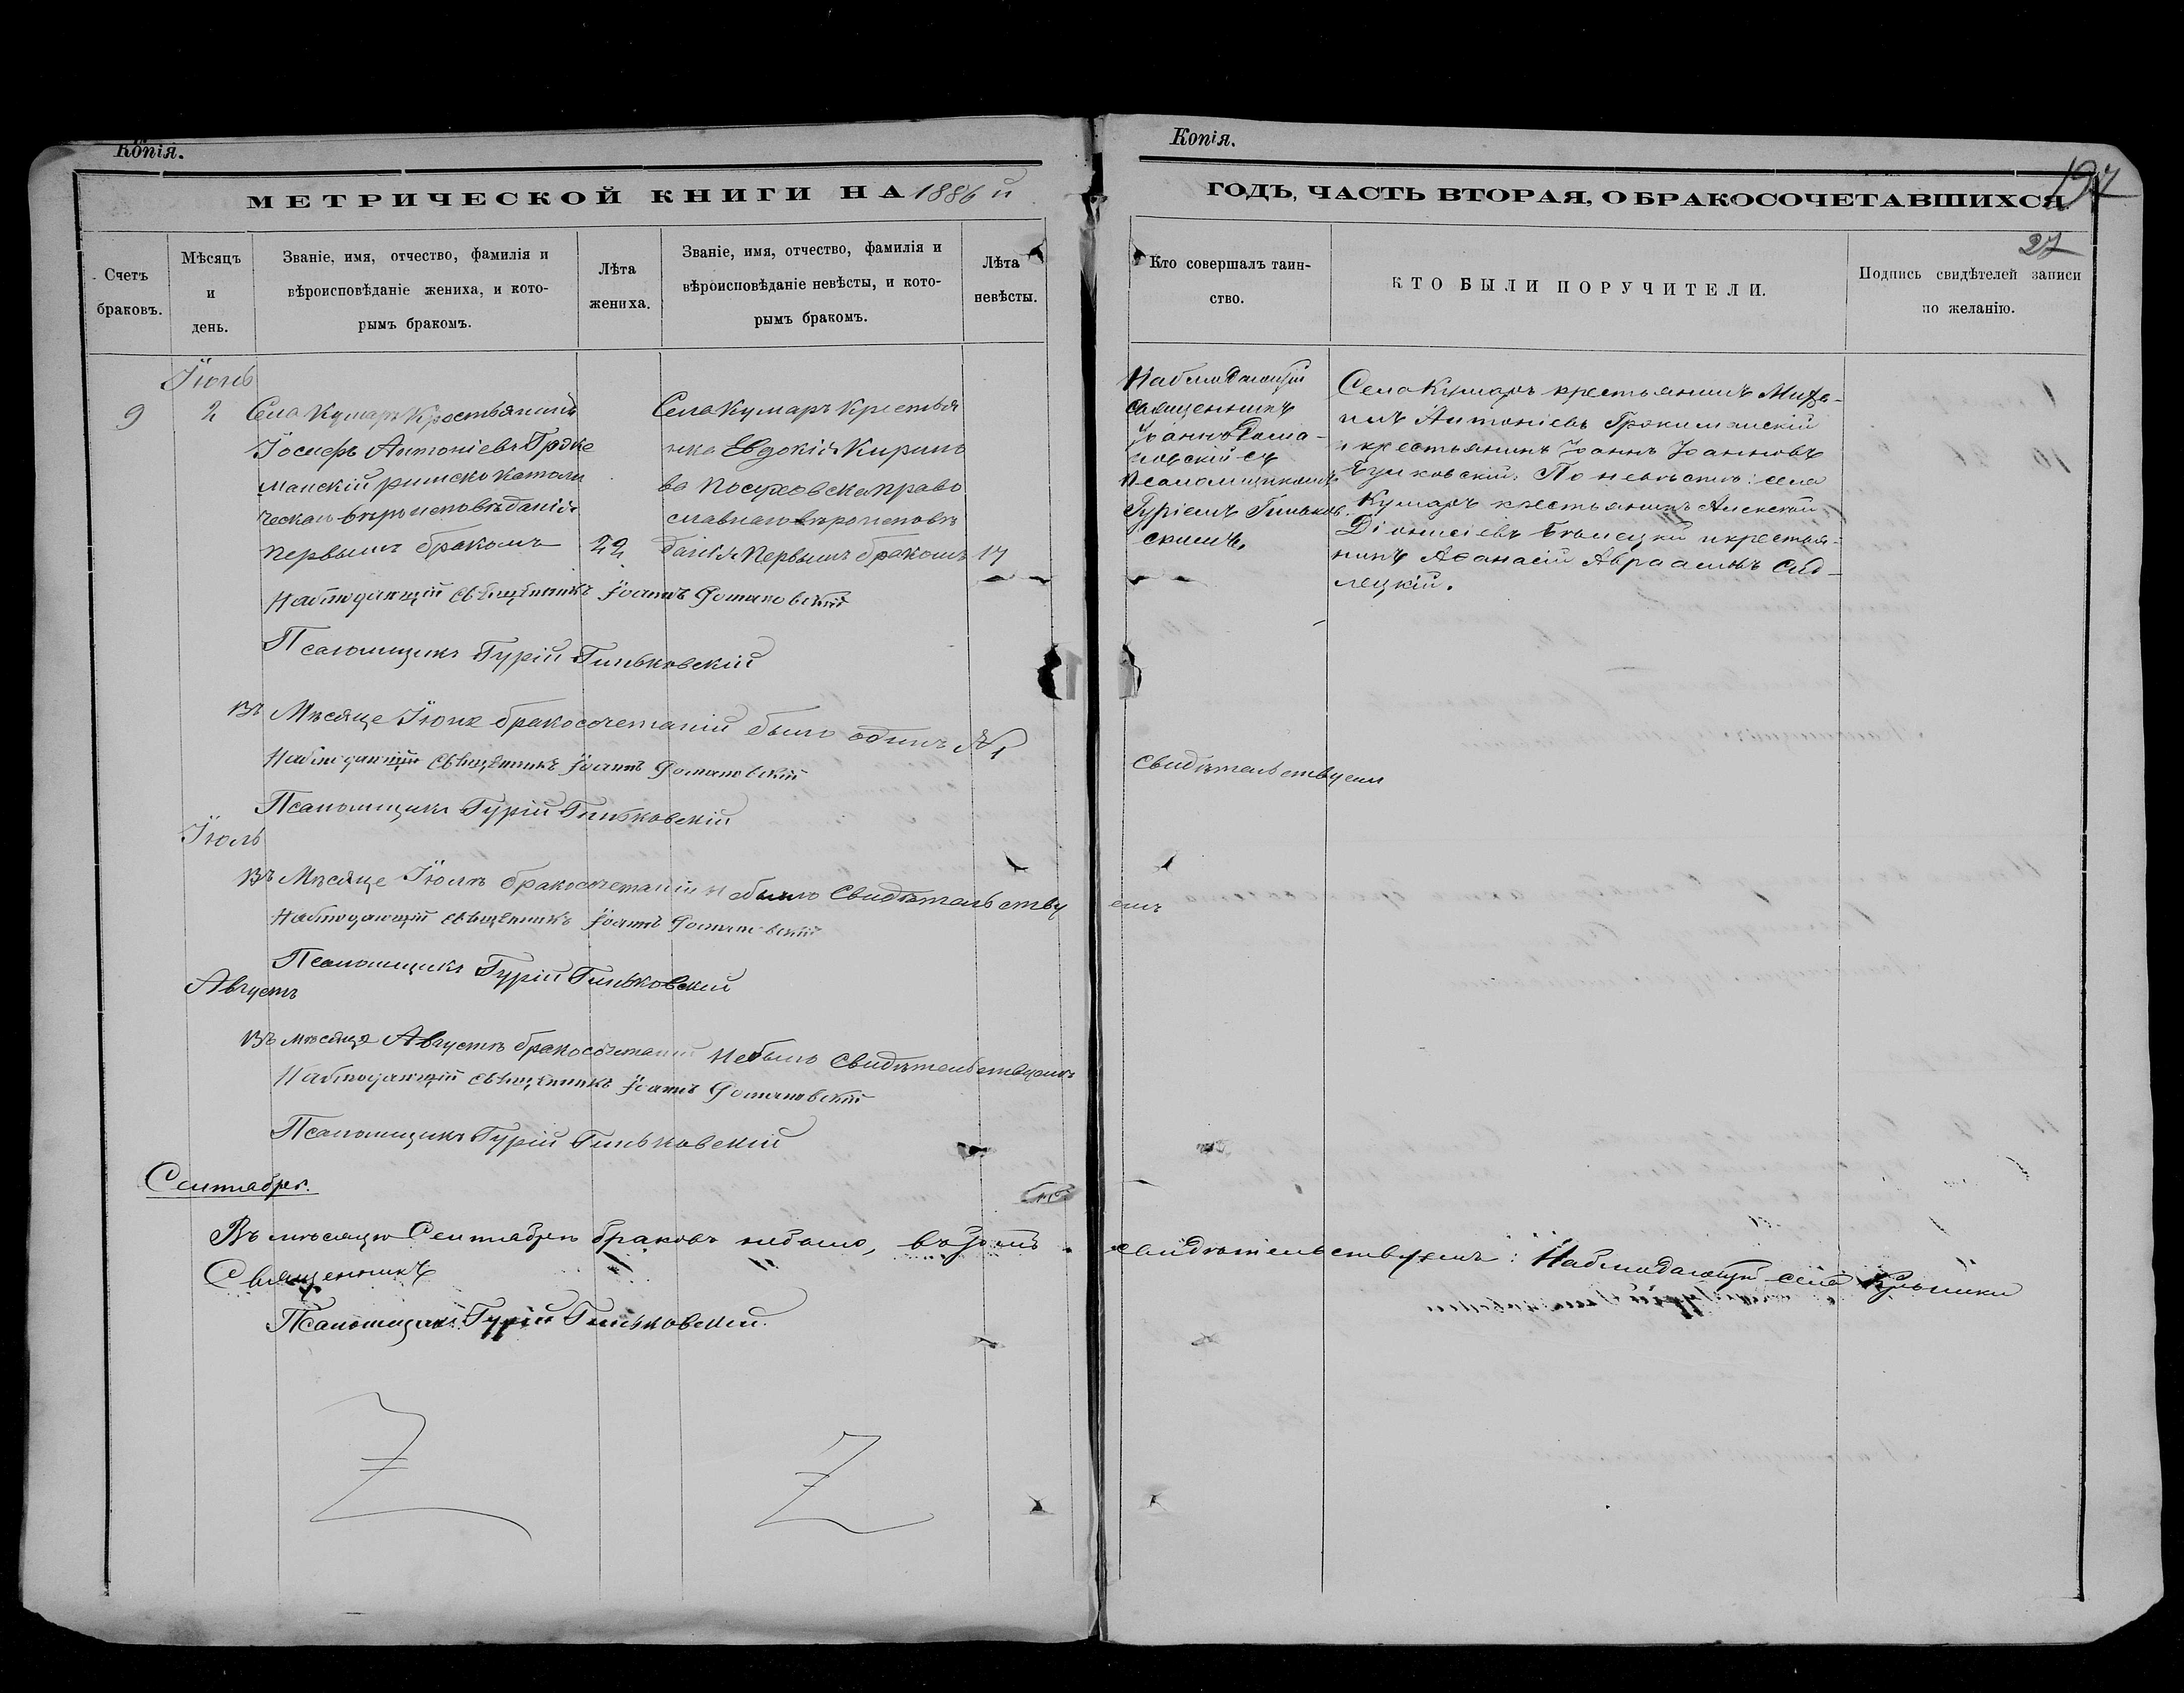 Копія.
МЕТРИЧЕСКОЙ КНИГИ НА 1886 й
Счетъ браковъ.
Мѣсяцъ и день.
Званіе, имя, отчество, фамилія и вѣроисповѣданіе жениха, и которымъ бракомъ.
Лѣта жениха.
Званіе, имя, отчество, фамилія и вѣроисповѣданіе невѣсты, и которымъ бракомъ.
Лѣта невѣсты.
Іюнь
9
2
Села Кумаръ Крестьянинъ
Іосифъ Антоніевъ
манскій римско Католи
ческаго вѣроисповѣданія
первымъ бракомъ
22
Села Кумаръ Крестья
нка Евдокія Кирило
ва право
славнаго вѣроисповѣ
данія Первымъ бракомъ
17
Наблюдающій священникъ Іоаннъ Романовскій
Псаломщикъ Гурій Гиньковскій
въ Мѣсяце Іюне бракосочетаній было одинъ №1
Наблюдающій священникъ Іоаннъ Романовскій
Псаломщикъ Гурій Гиньковскій
Іюль
въ Мѣсяце Іюлѣ бракосочетаній небыло Свидѣтельству
Наблюдающій священникъ Іоаннъ Романовскій
Псаломщикъ Гурій Гиньковскій
Августъ
въ мѣсяце Августѣ бракосочетаній небыло Свидѣтельствуемъ
Наблюдающій священникъ Іоаннъ Романовскій
Псаломщикъ Гурій Гиньковскій
Сентябрь.
Въ мѣсяцѣ Сентябрѣ браковъ небыло,
Священникъ
Псаломщикъ Гурій Гиньковскій.
Копія.
197
ГОДЪ, ЧАСТЬ ВТОРАЯ, О БРАКОСОЧЕТАВШИХСЯ.
27
Кто совершалъ таин-
ство.
КТО БЫЛИ ПОРУЧИТЕЛИ.
Подпись свидѣтелей записи
по желанію.
Наблюдающій
священникъ
Іоаннъ Рома-
новскій съ
Псаломщикомъ
Гуріемъ Гиньков
скимъ.
Села Кумаръ крестьянинъ Миха-
илъ Антоніевъ
и крестьянинъ Іоаннъ Іоанновъ
По невѣстѣ: села
Кумаръ крестьянинъ Алексѣй
Діонисіевъ и крестья-
нинъ Аѳанасій Авраамовъ Сѣд-
лецкій.
свидѣтельствуем
емъ
свидѣтельствуемъ: Наблюдающій села Кульчики